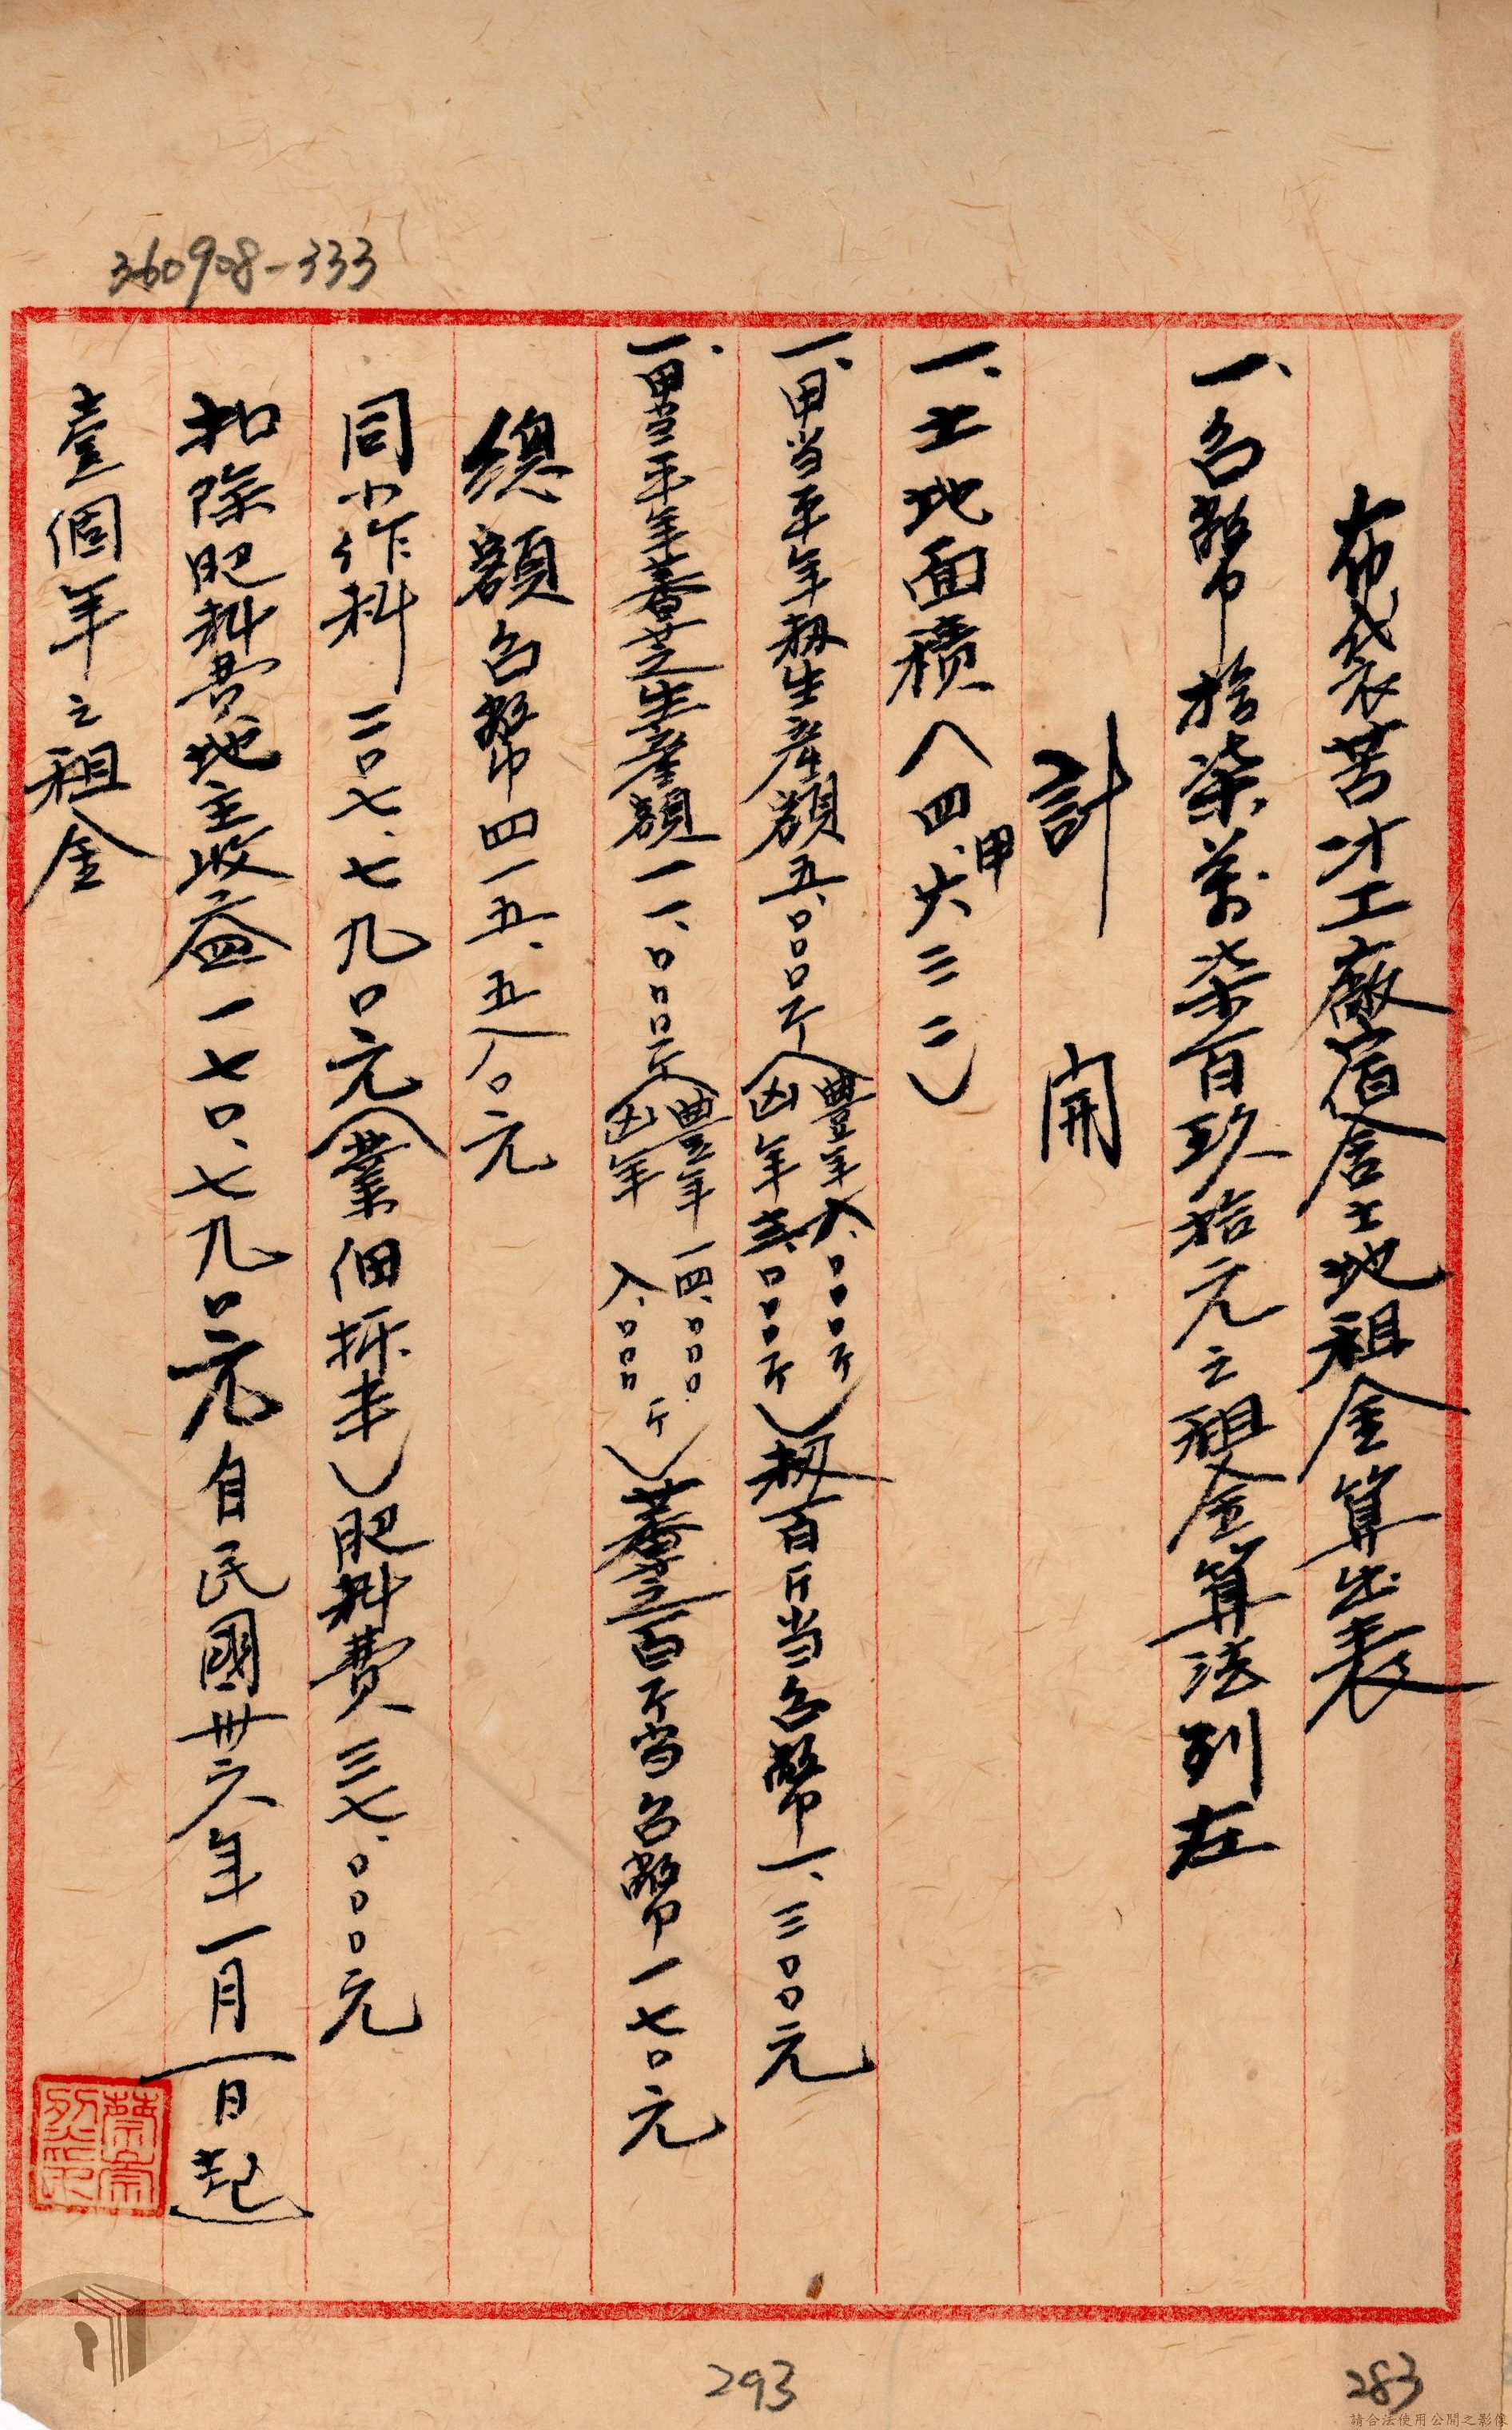 360908-333
布袋苦汁工廠宿舍土地租金算出表
一、台幣拾柒萬柒百玖拾元之租金算法列左
計開
一、土地面積八四、甲六三二
一、甲当平年籾生産額五、〇〇〇斤(豐年六、〇〇〇斤 凶年三、〇〇〇斤)籾百斤当台幣一、三〇〇元
一、甲当平年蕃芝生産額一一、〇〇〇斤(豐年一四、〇〇〇 凶年八、〇〇〇斤)蕃芝百斤当台幣一七〇元
總額台幣四一五、五八〇元
同小作料二〇七、七九〇元(業佃折半)肥料費三七、〇〇〇元
扣除肥料費地主收益一七〇、七九〇元自民國卅六年一月一日起
壹個年之租金
蔡宗
印
293
283
請合法使用公開之影像